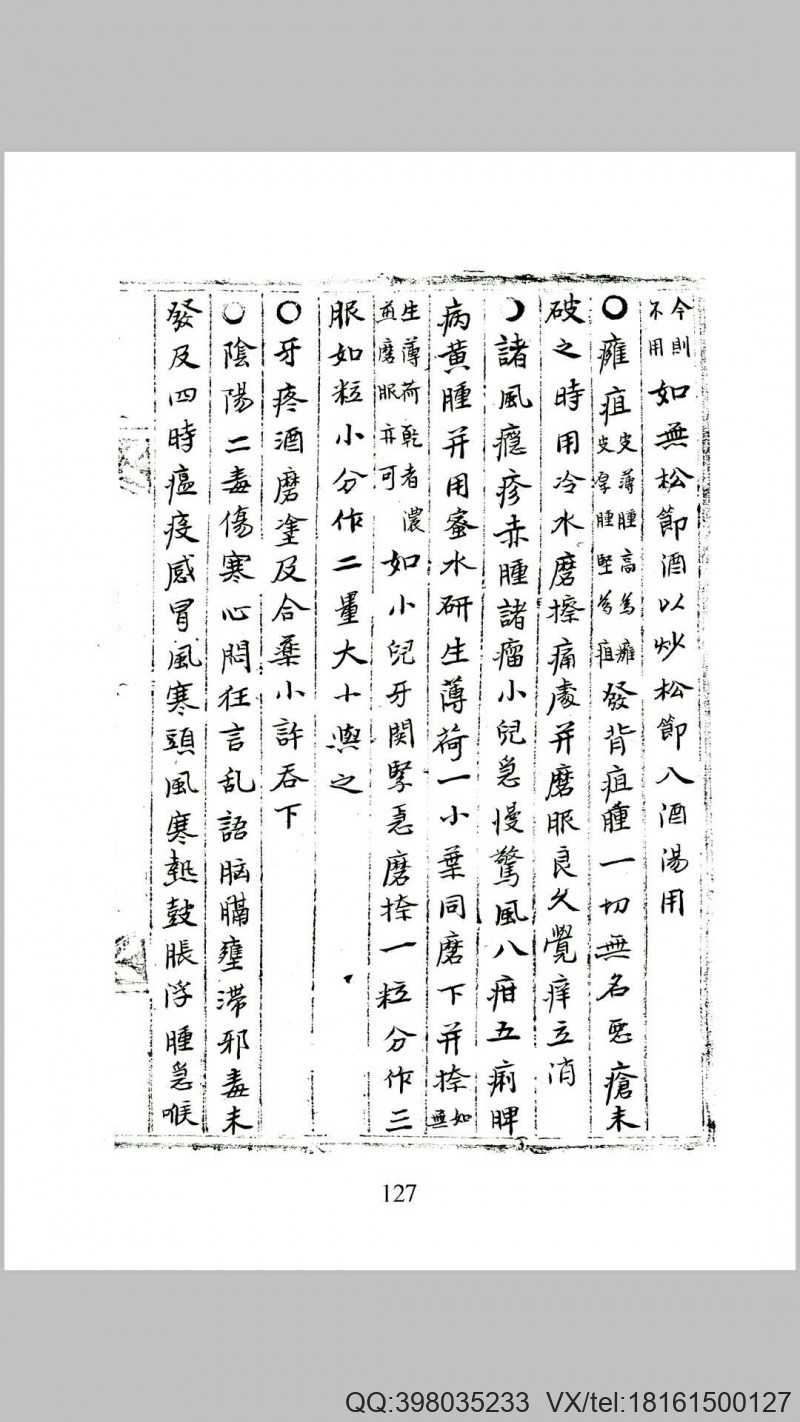 今則不用如無松節酒以炒松節八酒湯用
○癰疽皮薄腫高為癰皮厚腫堅為疽發背疽腫一切無名惡瘡未
破之時用冷水磨擦痛處并磨服良久覺痒立消
○諸風癮疹赤腫諸瘤小兒急慢驚風八疳五痢脾
病黄腫并用蜜水研生薄荷一小葉同磨下并捺如無
生薄荷乾者濃煎磨服亦可如小兒牙関緊急磨捺一粒分作三
服如粒小分作二量大小與之
○牙疼酒磨塗及合藥小許吞下
○陰陽二毒傷寒心悶狂言乱語胸膈壅滞邪毒未
發及四時瘟疫感冒風寒頭風寒熱鼓脹浮腫急喉
127
QQ:398035233 VX/tel:18161500127